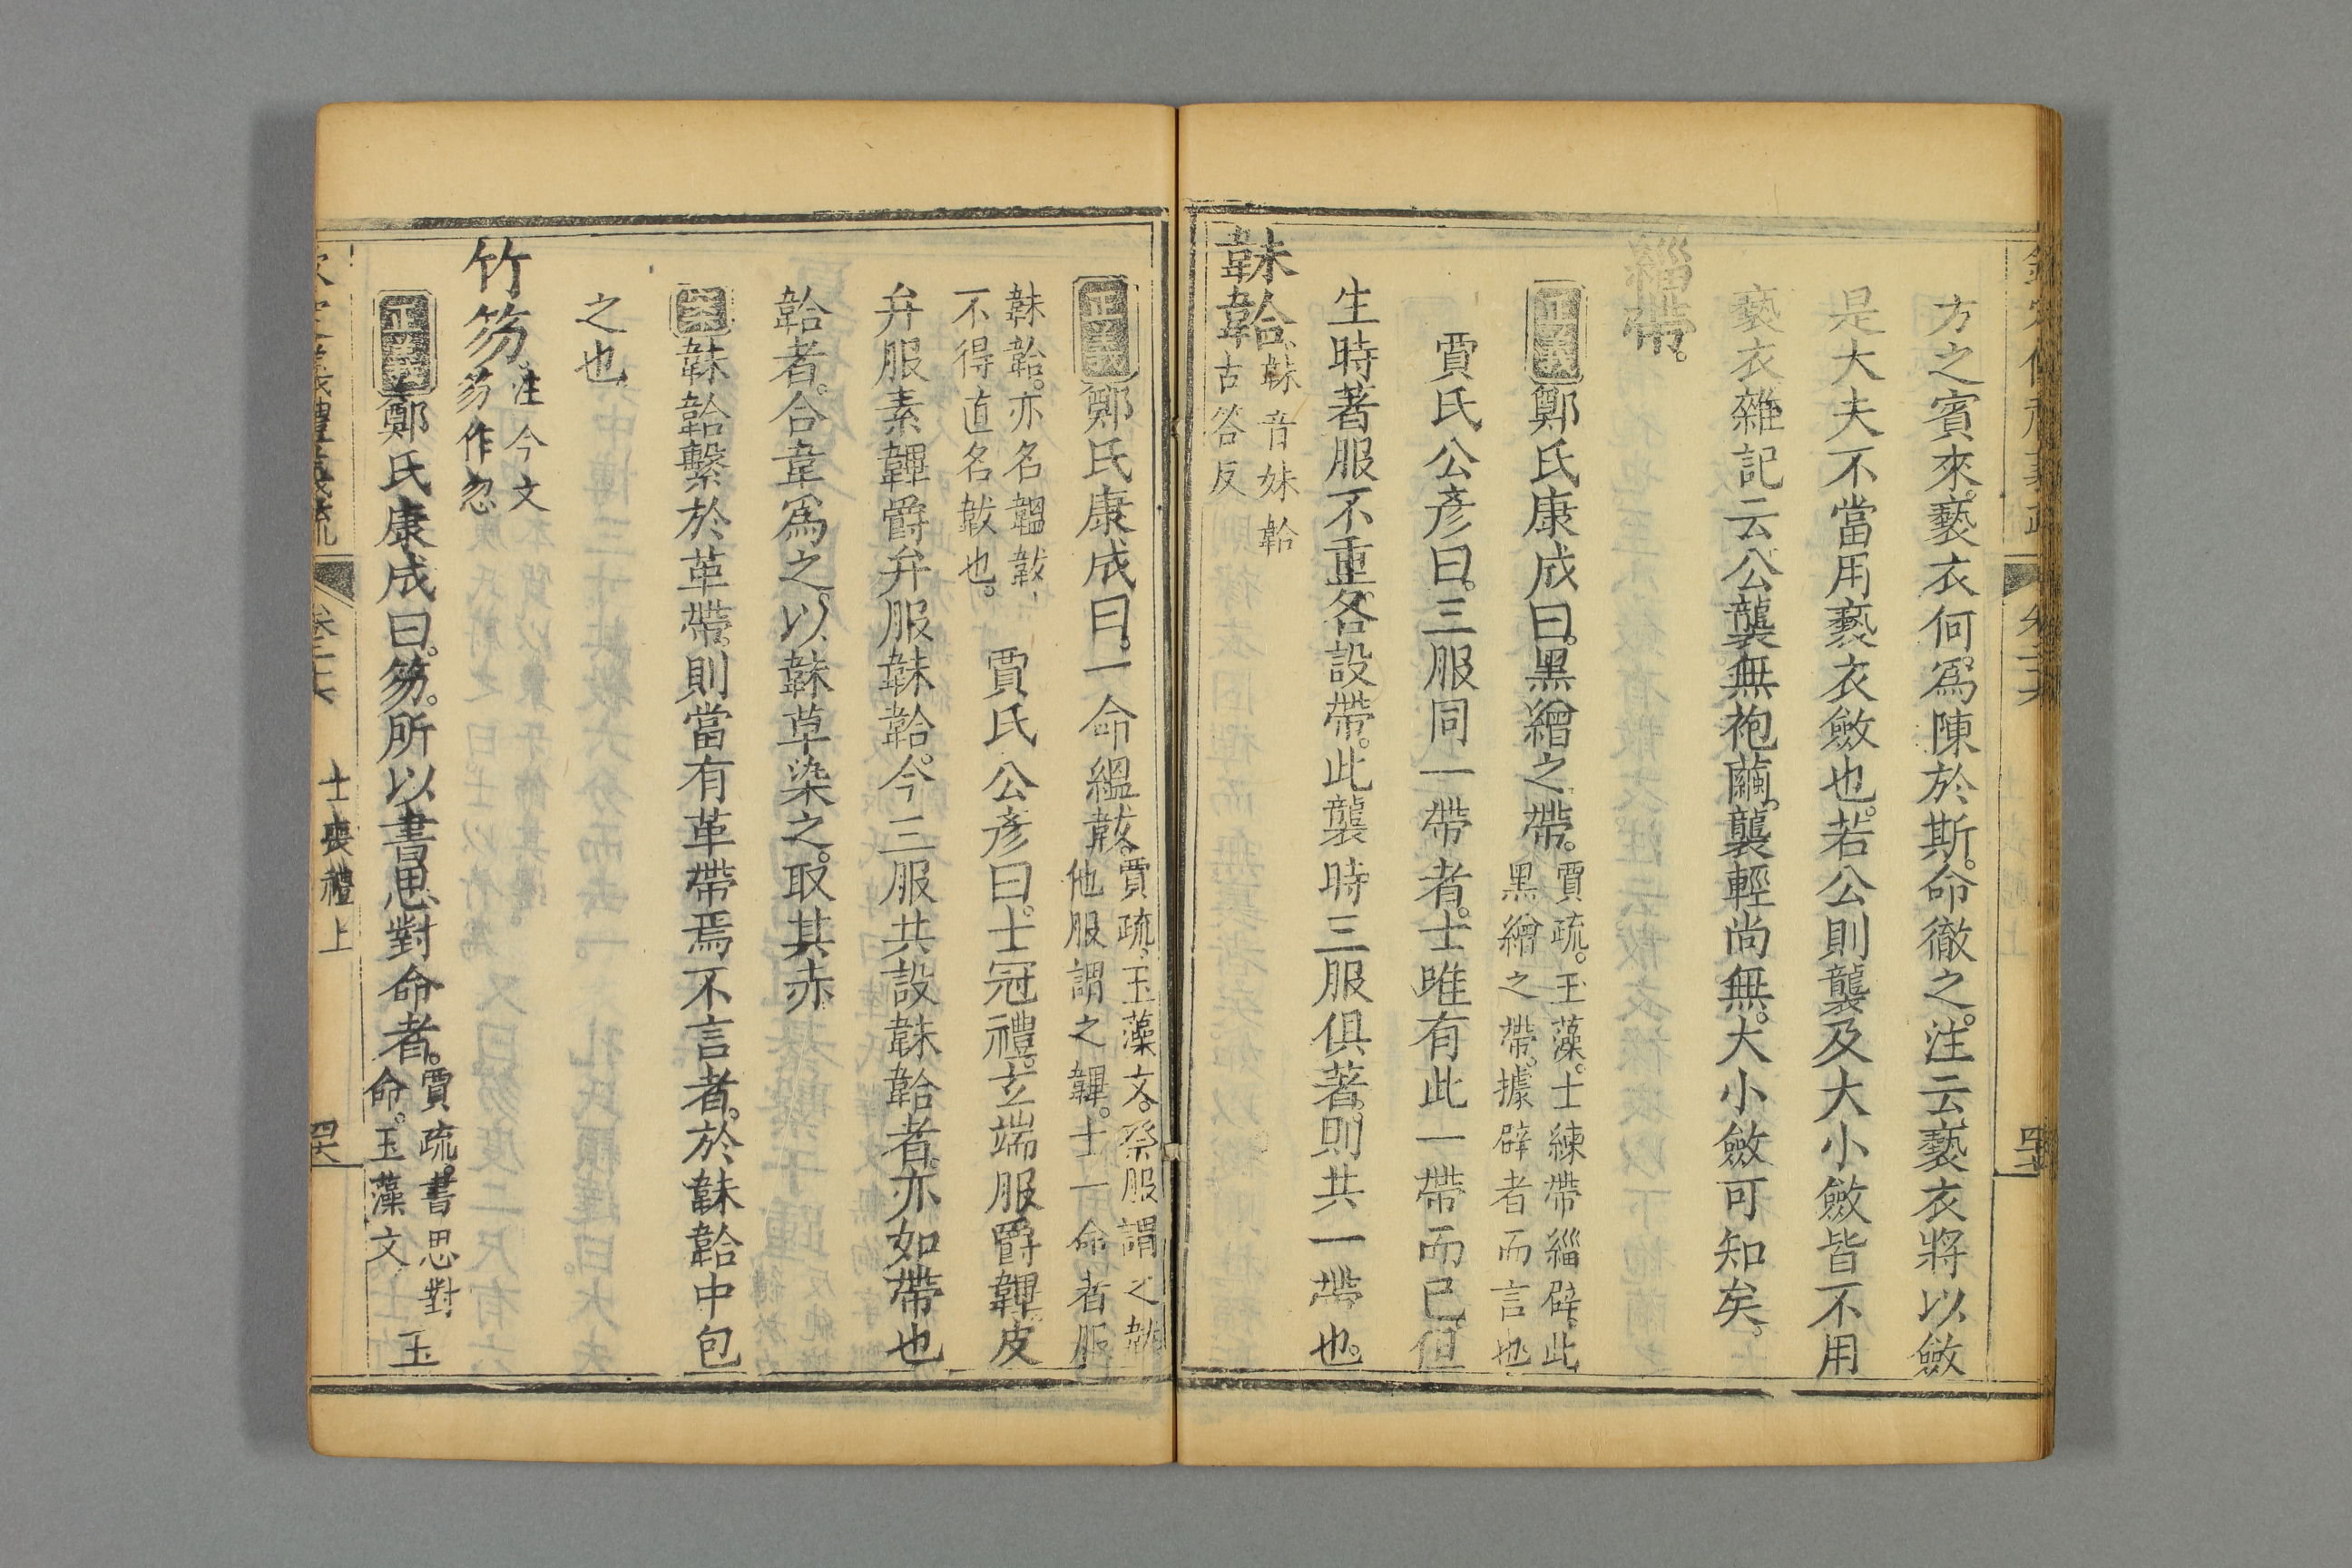 方之賓來。褻衣何爲陳於斯。命徹之。注云。褻衣將以斂
是大夫不當用褻衣斂也。若公則襲及大小斂皆不用
褻衣雜記云公襲無袍繭。襲輕尚無。大小斂可知矣。
緇帶。
正義鄭氏康成曰。黑繒之帶。賈疏。玉藻。士練帶緇辟。此
黑繒之帶。據辟者而言也。
賈氏公彥曰。三服同一帶者。士唯有此一帶而已。但
生時著服不重。各設帶。此襲時三服俱著。則共一帶也。
韎韐。韎音妹韐
古答反
正義鄭氏康成曰。一命縕韍。賈疏。玉藻文。祭服謂之韍。
他服謂之韠。士一命者服
韎韐。亦名縕韍。
不得直名韍也。
賈氏公彥曰。士冠禮。玄端服爵韠。皮
弁服素韠。爵弁服韎韐。今三服共設韎韐者。亦如帶也
韐者。合韋爲之。以韎草染之。取其赤
案韎韐繫於革帶。則當有革帶焉不言者。於韎韐中包
之也
竹笏。注今文
笏作忽
正義鄭氏康成曰。笏。所以書思對命者。賈疏。書思對
命。玉藻文
玉
欽定儀禮義疏 卷二十六 士喪禮上